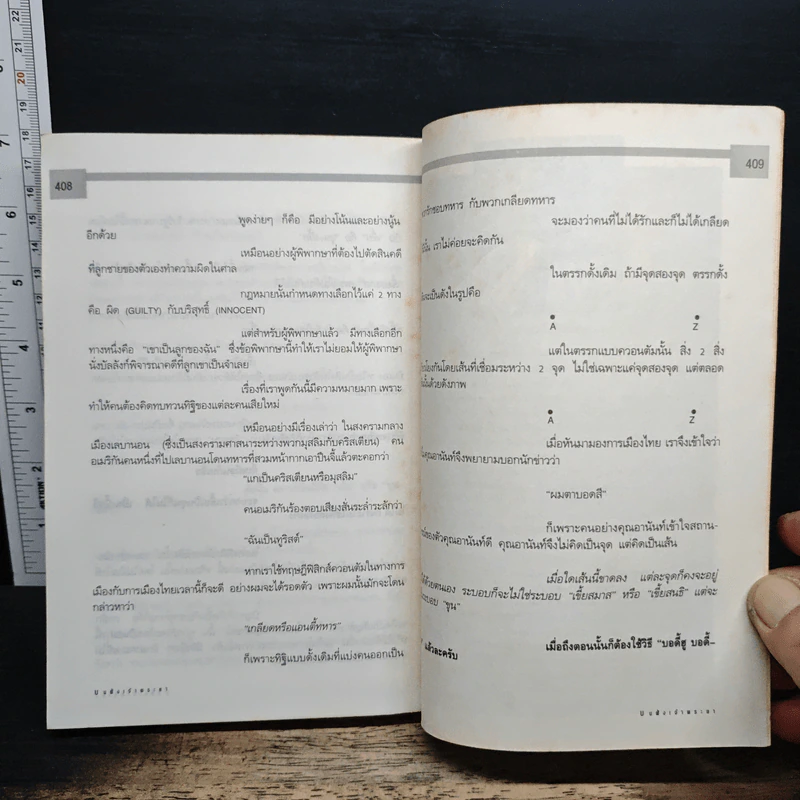 408
พูดง่ายๆ ก็คือ มีอย่างโน้นและอย่างนู้น
อีกด้วย
เหมือนอย่างผู้พิพากษาที่ต้องไปตัดสินคดี
ที่ลูกชายของตัวเองทำความผิดในศาล
กฎหมายนั้นกำหนดทางเลือกไว้แค่ 2 ทาง
คือ ผิด (GUILTY) กับบริสุทธิ์ (INNOCENT)
แต่สำหรับผู้พิพากษาแล้ว มีทางเลือกอีก
ทางหนึ่งคือ "เขาเป็นลูกของฉัน" ซึ่งข้อพิพากษานี้ทำให้เราไม่ยอมให้ผู้พิพากษา
นั่งบัลลังก์พิจารณาคดีที่ลูกเขาเป็นจำเลย
เรื่องที่เราพูดกันนี้มีความหมายมาก เพราะ
ทำให้คนต้องคิดทบทวนทิฐิของแต่ละคนเสียใหม่
เหมือนอย่างมีเรื่องเล่าว่า ในสงครามกลาง
เมืองเลบานอน (ซึ่งเป็นสงครามศาสนาระหว่างพวกมุสลิมกับคริสเตียน) คน
อเมริกันคนหนึ่งที่ไปเลบานอนโดนทหารที่สวมหน้ากากเอาปืนจี้แล้วตะคอกว่า
"แกเป็นคริสเตียนหรือมุสลิม"
คนอเมริกันร้องตอบเสียงสั่นระล่ำระลักว่า
"ฉันเป็นทูริสต์"
หากเราใช้ทฤษฎีฟิสิกส์ควอนตัมในทางการ
เมืองกับการเมืองไทยเวลานี้ก็จะดี อย่างผมจะได้รอดตัว เพราะผมนั้นมักจะโดน
กล่าวหาว่า
"เกลียดหรือแอนตี้ทหาร"
ก็เพราะทิฐิแบบดั้งเดิมที่แบ่งคนออกเป็น
409
รักชอบทหาร กับพวกเกลียดทหาร
จะมองว่าคนที่ไม่ได้รักและก็ไม่ได้เกลียด
นั้น เราไม่ค่อยจะคิดกัน
ในตรรกดั้งเดิม ถ้ามีจุดสองจุด ตรรกดั้ง
จะเป็นดังในรูปคือ
A Z
แต่ในตรรกแบบควอนตัมนั้น สิ่ง 2 สิ่ง
โยงกันโดยเส้นที่เชื่อมระหว่าง 2 จุด ไม่ใช่เฉพาะแค่จุดสองจุด แต่ตลอด
นั้นด้วยดังภาพ
A Z
เมื่อหันมามองการเมืองไทย เราจึงเข้าใจว่า
คุณอานันท์จึงพยายามบอกนักข่าวว่า
"ผมตาบอดสี"
ก็เพราะคนอย่างคุณอานันท์เข้าใจสถาน-
ของตัวคุณอานันท์ดี คุณอานันท์จึงไม่คิดเป็นจุด แต่คิดเป็นเส้น
เมื่อใดเส้นนี้ขาดลง แต่ละจุดก็คงจะอยู่
ด้วยตนเอง ระบอบก็จะไม่ใช่ระบอบ "เขี้ยสมาส" หรือ "เขี้ยสนธิ" แต่จะ
ระบอบ "ขุน"
เมื่อถึงตอนนั้นก็ต้องใช้วิธี "บอดี้ฮู บอดี้-
แล้วละครับ